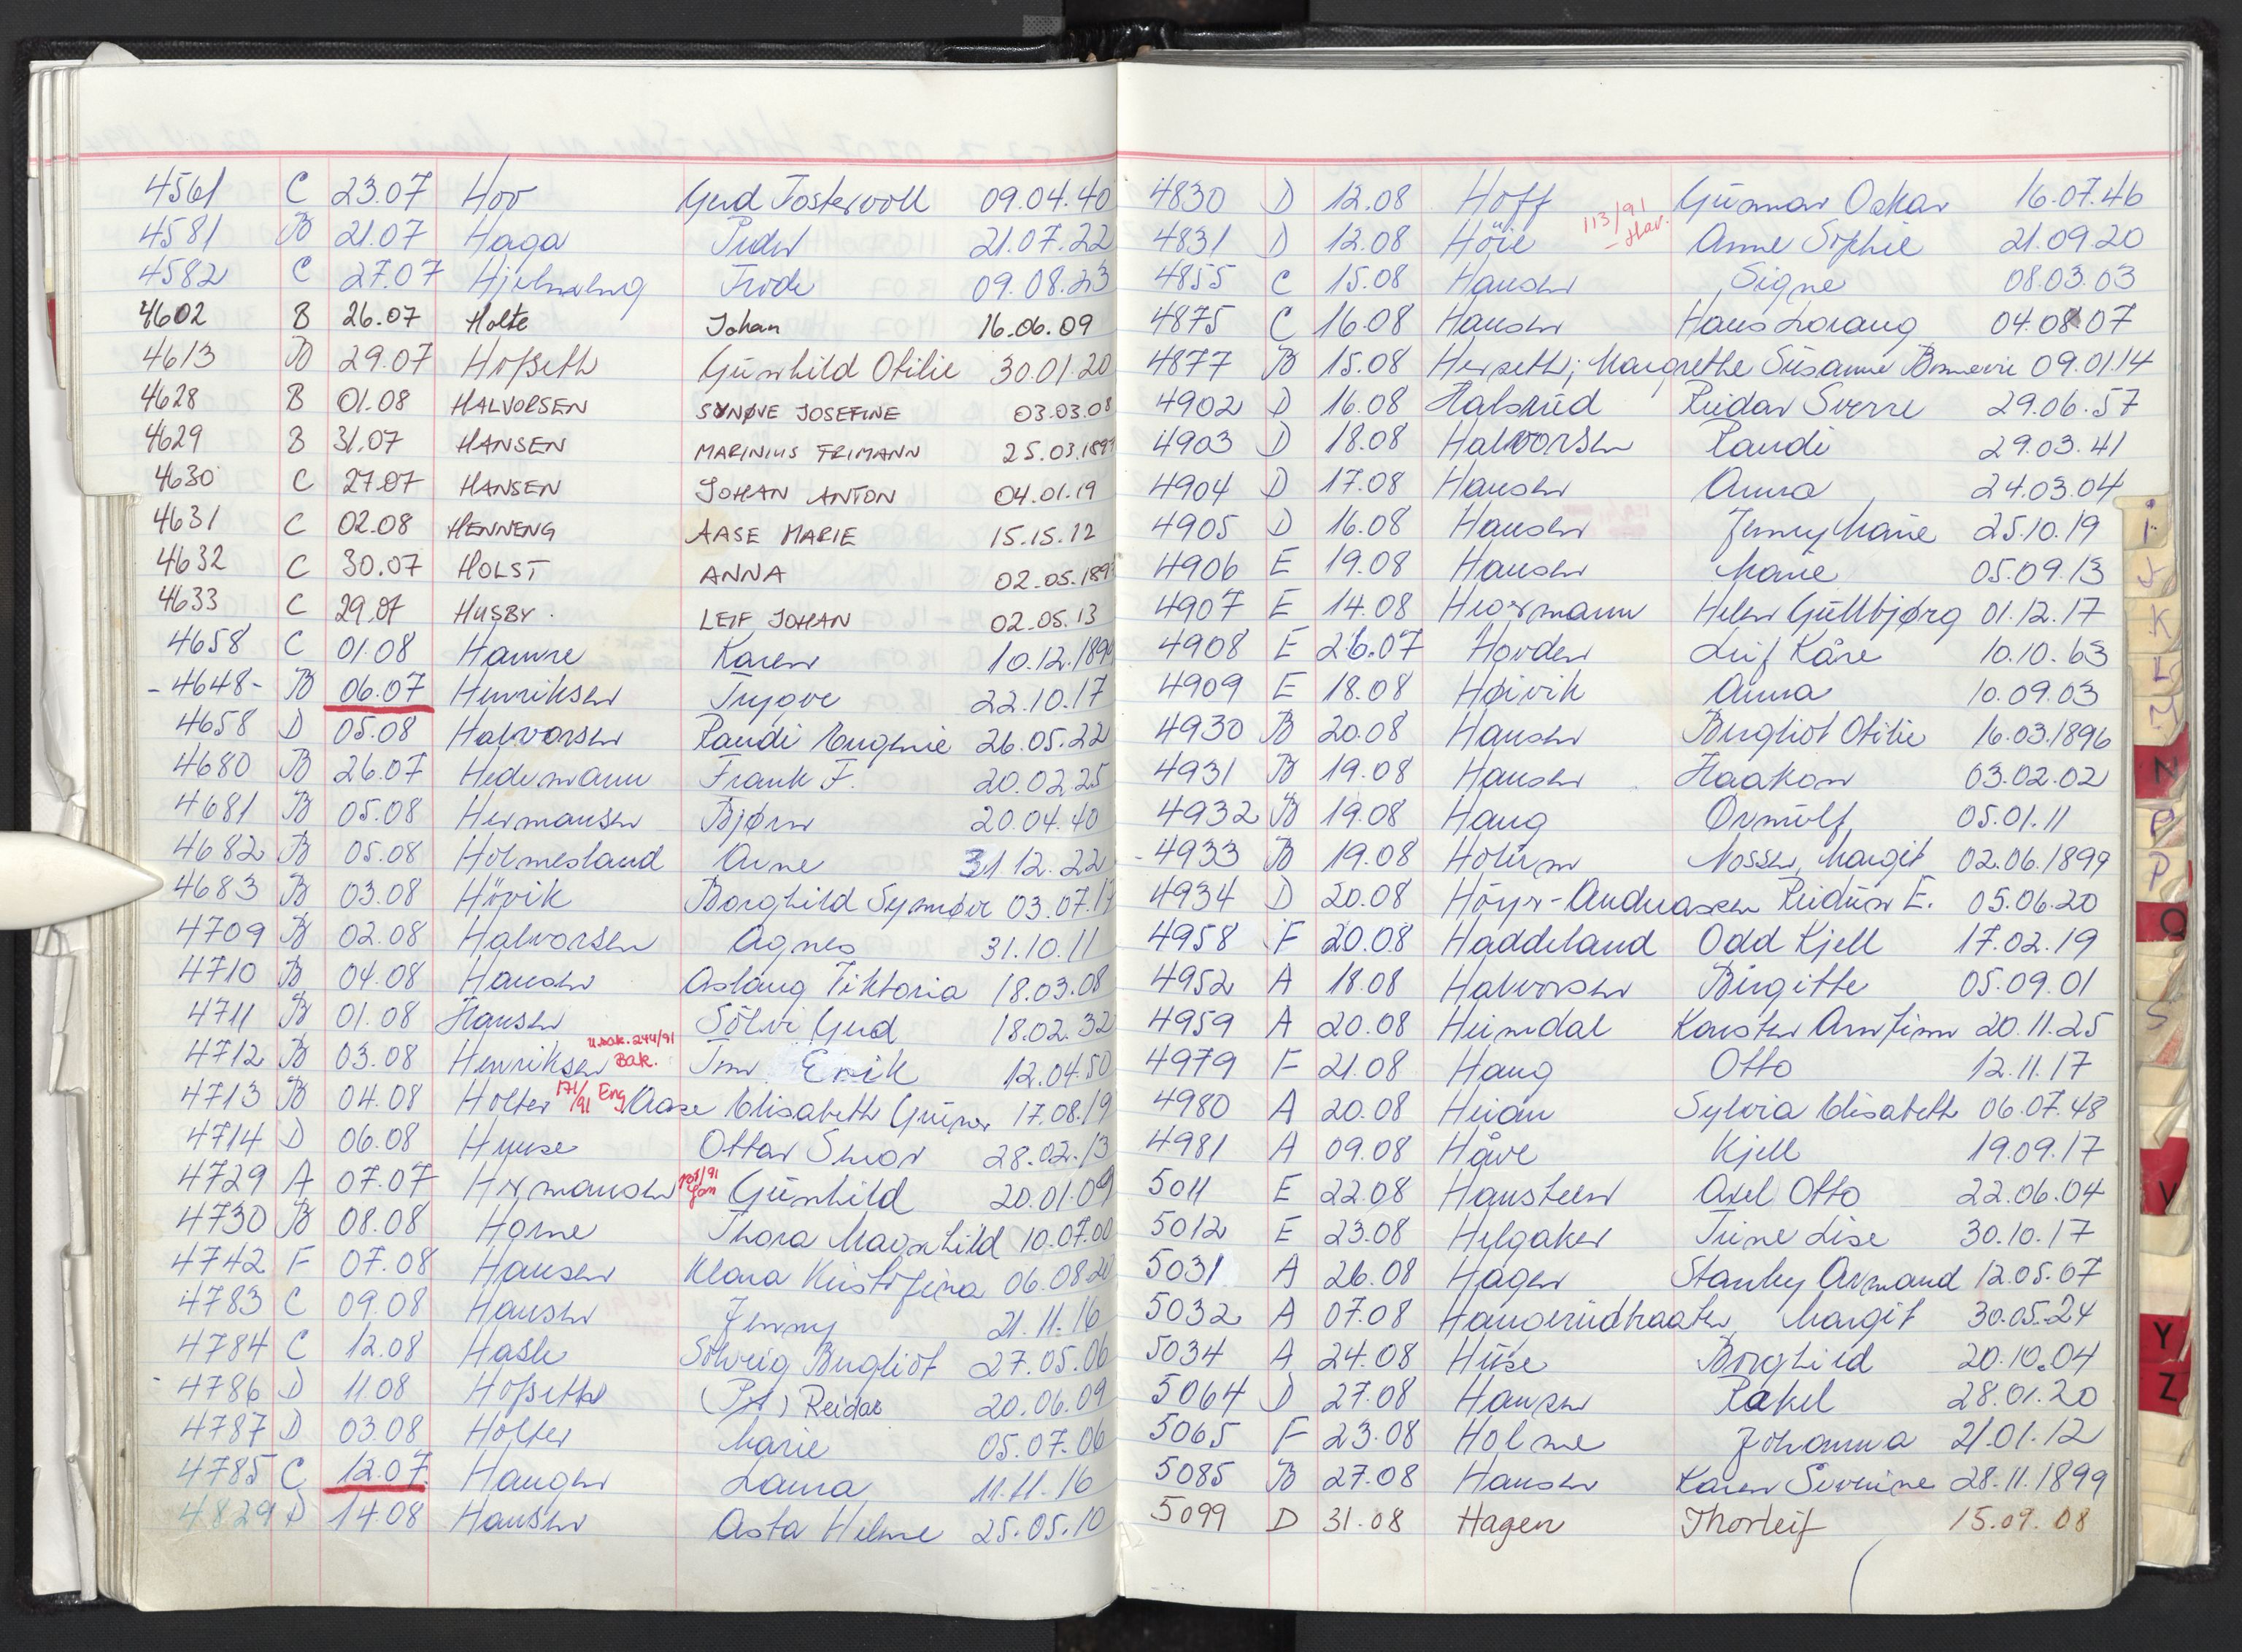 4561 C 23.07 Hov Gerd Tostervoll 09.04.40
4581 B 21.07 Haga Peder 21.07.22
4582 C 27.07 Hjelmeng Frode 09.08.23
4602 B 26.07 Holte Johan 16.06.09
4613 B 29.07 Hofseth Gunhild Otilie 30.01.20
4628 B 01.08 HALVORSEN SYNØVE JOSEFINE 03.03.08
4629 B 31.07 HANSEN MARINIUS FRIMANN 25.03.189
4630 C 27.07 HANSEN JOHAN ANTON 04.01.19
4631 C 02.08 HENNENG AASE MARIE 15.15.12
4632 C 30.07 HOLST ANNA 02.05.189
4633 C 29.07 HUSBY. LEIF JOHAN 02.05.13
4658 C 01.08 Hamre Karen 10.12.189
-4648- B 06.07 Henriksen Trygve 22.10.17
4658 D 05.08 Halvorsen Randi Eugenie 26.05.22
4680 B 26.07 Hedemann Frank F. 20.02.25
4681 B 05.08 Hermansen Bjørn 20.04.40
4682 B 05.08 Holmesland Arne 31.12.22
4683 B 03.08 Hövik Borghild Synnøve 03.07.17
4709 B 02.08 Halvorsen Agnes 31.10.11
4710 B 04.08 Hansen Aslaug Viktoria 18.03.08
4711 B 01.08 Hansen Sölvi Gerd 18.02.32
4712 B 03.08 Henriksen u.sak. 244/91 Bak. Tom Erik 12.04.50
4713 B 04.08 Holter 171/91 Eng Aase Elisabeth Gruner 17.08.19
4714 D 06.08 Huuse Ottar Simon 28.02.13
4729 A 07.07 Hermansen Gunhild 20.01.09
4730 B 08.08 Horne Thora Magnhild 10.07.00
4742 F 07.08 Hansen Klara Kristofina 06.08.20
4783 C 09.08 Hansen Jenny 21.11.16
4784 C 12.08 Hasle Solveig Bergliot 27.05.06
4786 D 11.08 Hofseth Reidar 20.06.09
4787 D 03.08 Holter Marie 05.07.06
4785 C 12.07 Hanger Laura 11.11.16
4829 D 14.08 Hansen Asta Helene 25.05.10
4830 D 12.08 Hoff Gunnar Oskar 16.07.46
4831 D 12.08 Höie 113/91 -Hav. Anne Sophie 21.09.20
4855 C 15.08 Hansen Signe 08.03.03
4875 C 16.08 Hansen Hans Lorang 04.08.07
4877 B 15.08 Herseth; Margrethe Susanne Bonnevie 09.01.14
4902 D 16.08 Halsrud Reidar Sverre 29.06.57
4903 D 18.08 Halvorsen Randi 29.03.41
4904 D 17.08 Hansen Anna 24.03.04
4905 D 16.08 Hansen Jenny Marie 25.10.19
4906 E 19.08 Hansen Marie 05.09.13
4907 E 14.08 Hermann Helen Gullbjørg 01.12.17
4908 E 26.07 Hovden Leif Kåre 10.10.63
4909 E 18.08 Høivik Anna 10.09.03
4930 B 20.08 Hansen Bergliot Otilie 16.03.1896
4931 B 19.08 Hansen Haakon 03.02.02
4932 B 19.08 Haug Ørnulf 05.01.11
-4933 B 19.08 Holum Margit 02.06.1899
4934 D 20.08 Höyer-Andreassen Reidun E. 05.06.20
4958 F 20.08 Haddeland Odd Kjell 17.02.19
4952 A 18.08 Halvorsen Birgitte 05.09.01
4959 A 20.08 Heimdal Karsten Arnfinn 20.11.25
4979 F 21.08 Haug Otto 12.11.17
4980 A 20.08 Heian Sylvia Elisabeth 06.07.48
4981 A 09.08 Håve Kjell 19.09.17
5011 E 22.08 Hansteen Axel Otto 22.06.04
5012 E 23.08 Helgaker Trine Lise 30.10.17
5031 A 26.08 Hagen Stanley Armand 12.05.07
5032 A 07.08 Haugerudbraaten Margit 30.05.24
5034 A 24.08 Huse Borghild 20.10.04
5064 D 27.08 Hansen Rakel 28.01.20
5065 F 23.08 Holme Johanna 21.01.12
5085 B 27.08 Hansen Karen Severine 28.11.1899
5099 D 31.08 Hagen Thorleif 15.09.08
i
J
K
L
M
N
P
Q
S
V
Y
Z